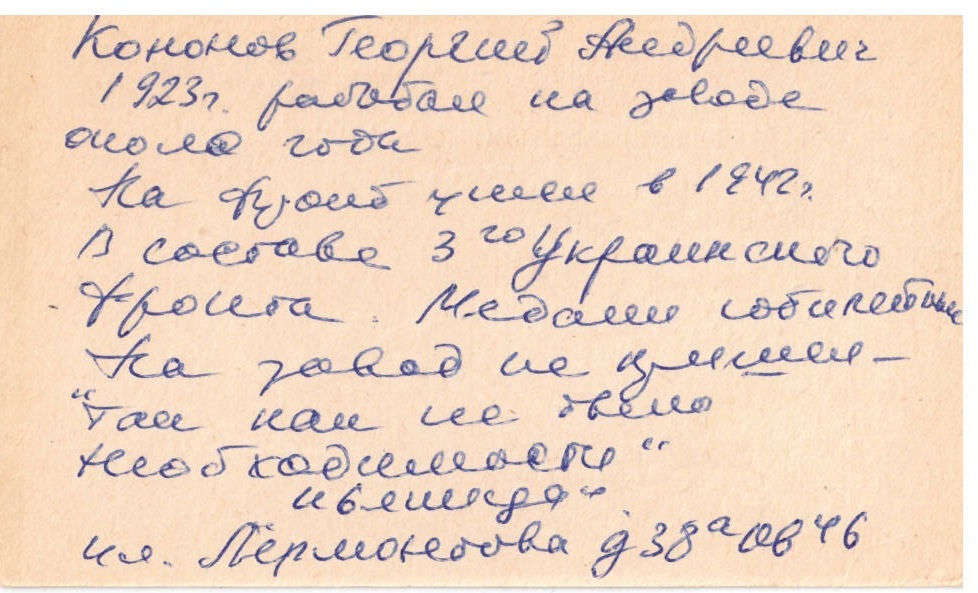 Кононов Георгий Андреевич
1923г. работал на заводе
около года
На фронт ушел в 1942г.
В составе 3го Украинского
фронта. Медали юбилейные
На завод не пришел –
"так как не было
необходимости"
ул. Лермонтова д 38а кв 46